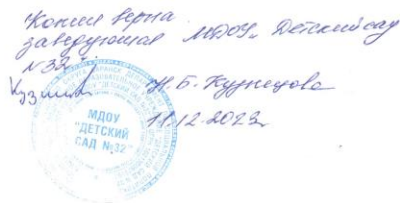 Копия верна
заведующая МДОУ „Детский сад
№32"
Н.Б. Кузнецова
11.12.2023г.
МДОУ
"ДЕТСКИЙ
САД №32"